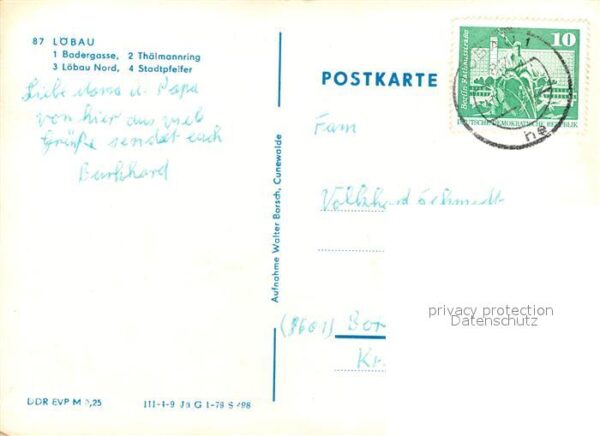 87 LÖBAU
1 Badergasse, 2 Thälmannring
3 Löbau Nord, 4 Stadtpfeifer
Liebe Mama u. Papa
von hier aus viele
Grüße sendet euch
Burkhard
DDR EVP M 0,25
III-4-9 Jc G 1-78 S 498
Aufnahme Walter Borsch, Cunewalde
POSTKARTE
10
Berlin Rathausstraße
DEUTSCHE DEMOKRATISCHE REPUBLIK
Fam
Volkhard Schmidt
privacy protection
Datenschutz
Bor
Kr.